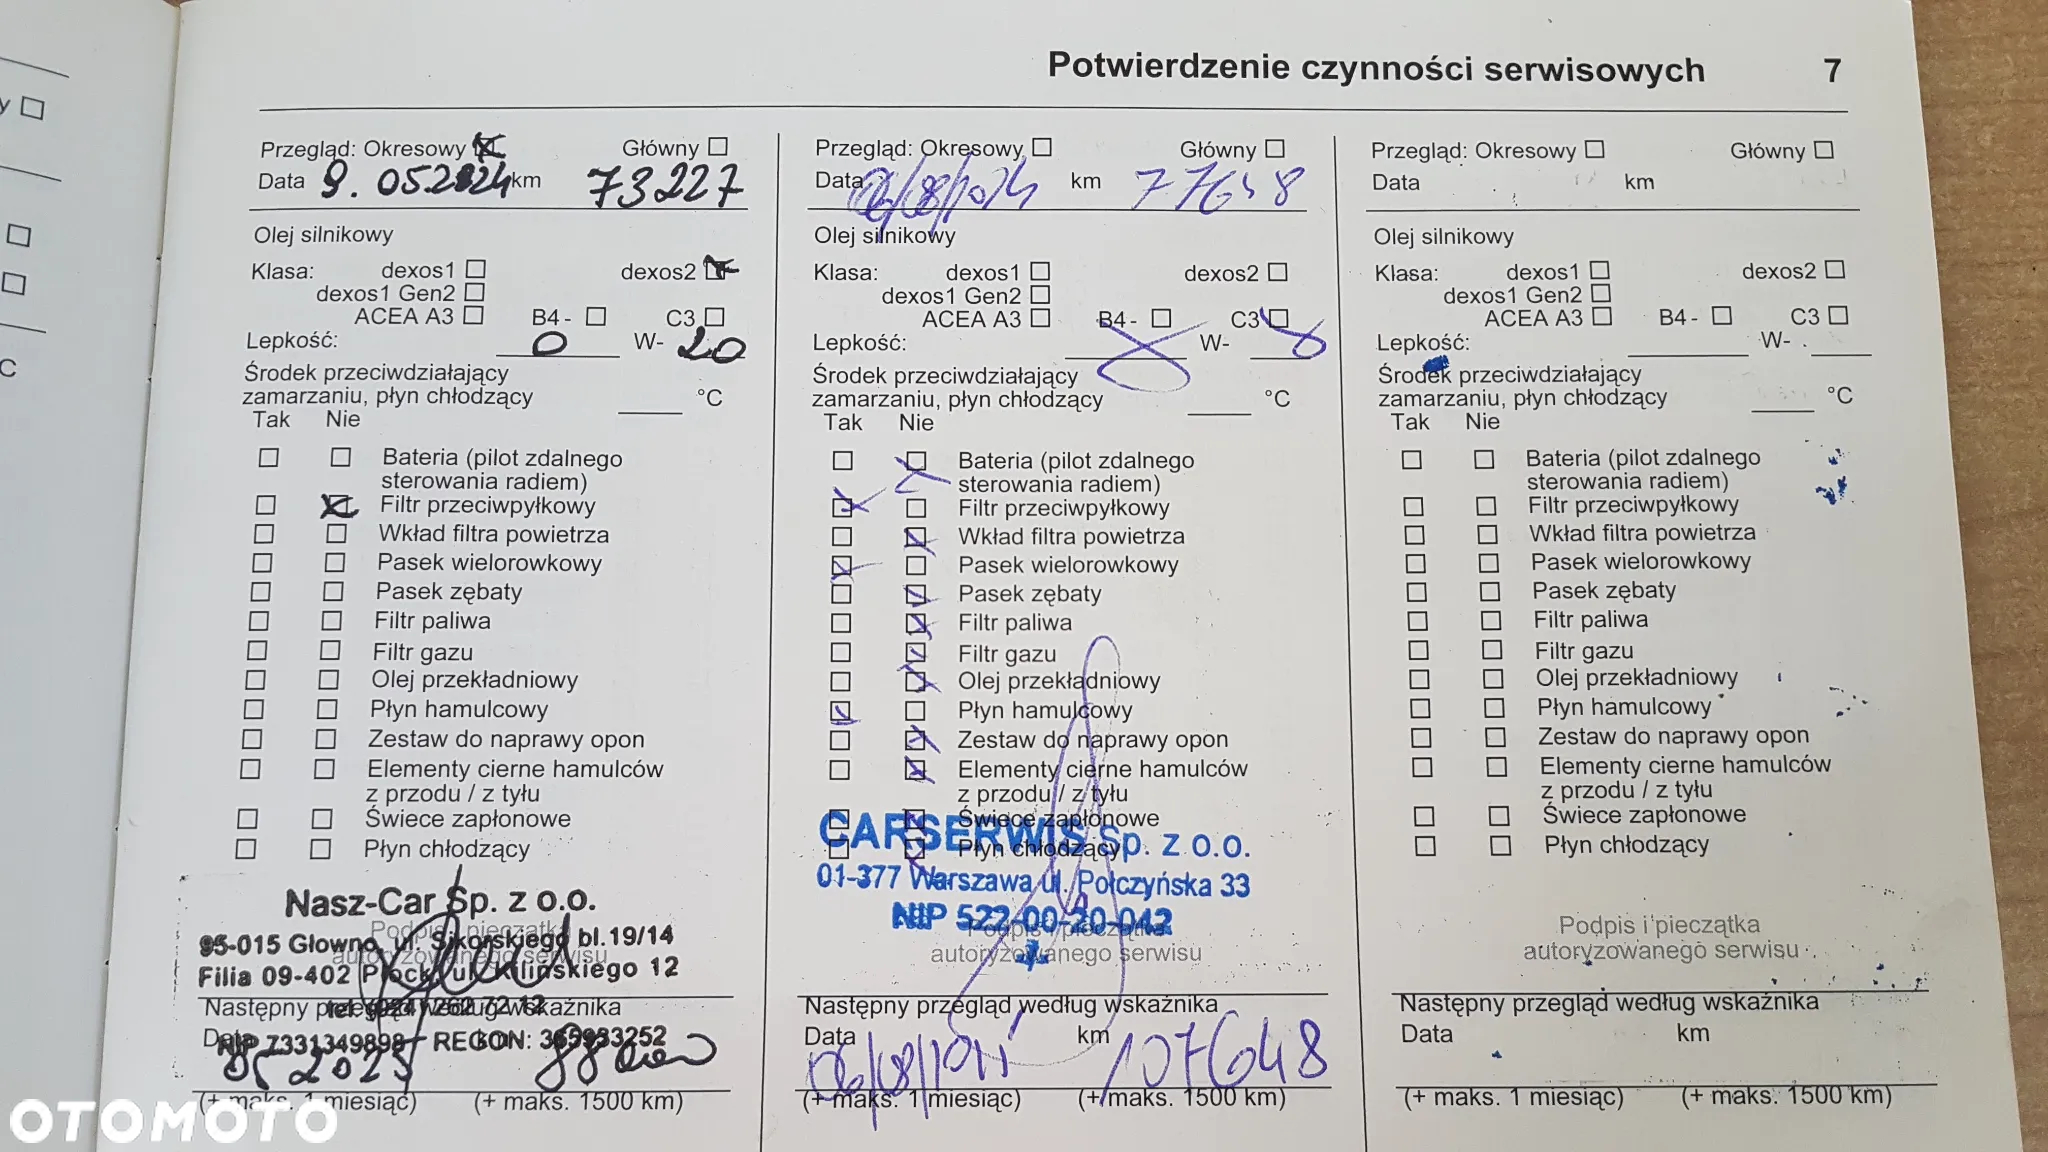 Potwierdzenie czynności serwisowych 7
Przegląd: Okresowy Główny
Data 9.052024 km 73227
Olej silnikowy
Klasa: dexos1 dexos2
dexos1 Gen2
ACEA A3 B4 - C3
Lepkość: 0 W- 20
Środek przeciwdziałający
zamarzaniu, płyn chłodzący °C
Tak Nie
Bateria (pilot zdalnego
sterowania radiem)
Filtr przeciwpyłkowy
Wkład filtra powietrza
Pasek wielorowkowy
Pasek zębaty
Filtr paliwa
Filtr gazu
Olej przekładniowy
Płyn hamulcowy
Zestaw do naprawy opon
Elementy cierne hamulców
z przodu / z tyłu
Świece zapłonowe
Płyn chłodzący
Nasz-Car Sp. z o.o.
Podpis i pieczątka
95-015 Głowno, ul. Sikorskiego bl.19/14
autoryzowanego serwisu
Filia 09-402 Płock, ul. Kilińskiego 12
Następny przegląd według wskaźnika
Data km
NIP 7331349898 REGON: 365953252
05 2025
(+ maks. 1 miesiąc) (+ maks. 1500 km)
Przegląd: Okresowy Główny
Data 06/08/2024 km 77648
Olej silnikowy
Klasa: dexos1 dexos2
dexos1 Gen2
ACEA A3 B4 - C3
Lepkość: W-
Środek przeciwdziałający
zamarzaniu, płyn chłodzący °C
Tak Nie
Bateria (pilot zdalnego
sterowania radiem)
Filtr przeciwpyłkowy
Wkład filtra powietrza
Pasek wielorowkowy
Pasek zębaty
Filtr paliwa
Filtr gazu
Olej przekładniowy
Płyn hamulcowy
Zestaw do naprawy opon
Elementy cierne hamulców
z przodu / z tyłu
Świece zapłonowe
CARSERWIS Sp. z o.o.
Płyn chłodzący
01-377 Warszawa ul. Połczyńska 33
NIP 522-00-20-042
Podpis i pieczątka
autoryzowanego serwisu
Następny przegląd według wskaźnika
Data km 107648
(+ maks. 1 miesiąc) (+ maks. 1500 km)
Przegląd: Okresowy Główny
Data km
Olej silnikowy
Klasa: dexos1 dexos2
dexos1 Gen2
ACEA A3 B4 - C3
Lepkość: W-
Środek przeciwdziałający
zamarzaniu, płyn chłodzący °C
Tak Nie
Bateria (pilot zdalnego
sterowania radiem)
Filtr przeciwpyłkowy
Wkład filtra powietrza
Pasek wielorowkowy
Pasek zębaty
Filtr paliwa
Filtr gazu
Olej przekładniowy
Płyn hamulcowy
Zestaw do naprawy opon
Elementy cierne hamulców
z przodu / z tyłu
Świece zapłonowe
Płyn chłodzący
Podpis i pieczątka
autoryzowanego serwisu
Następny przegląd według wskaźnika
Data km
(+ maks. 1 miesiąc) (+ maks. 1500 km)
OTOMOTO